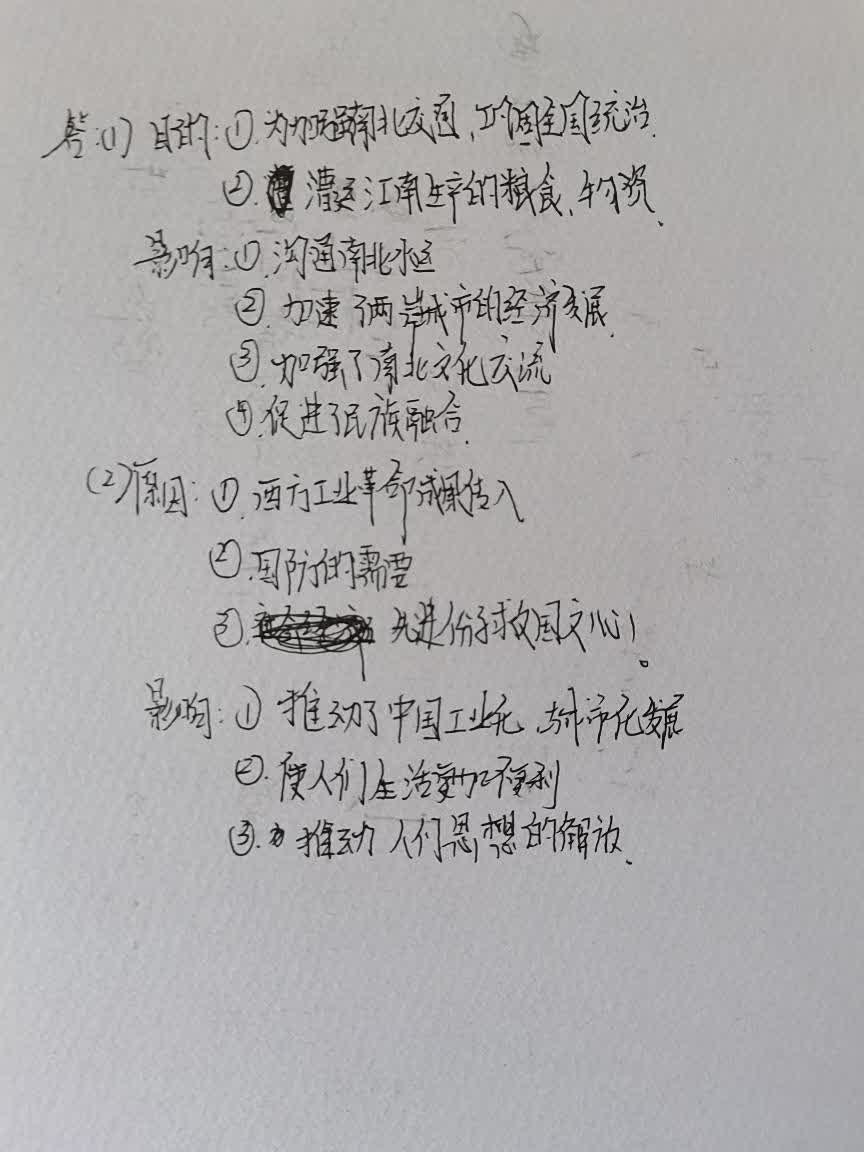 答:(1) 目的:①.为加强南北交通、巩固全国统治.
②. 漕运江南生产的粮食、物资、
影响:①.沟通南北水运
②.加速了两岸城市的经济发展.
③.加强了南北文化交流
④.促进了民族融合.
(2)原因:①.西方工业革命成果传入
②.国防的需要
③. 先进份子救国之心!
影响:① 推动了中国工业化、城市化发展
②.使人们生活更加便利
③. 推动人们思想的解放、